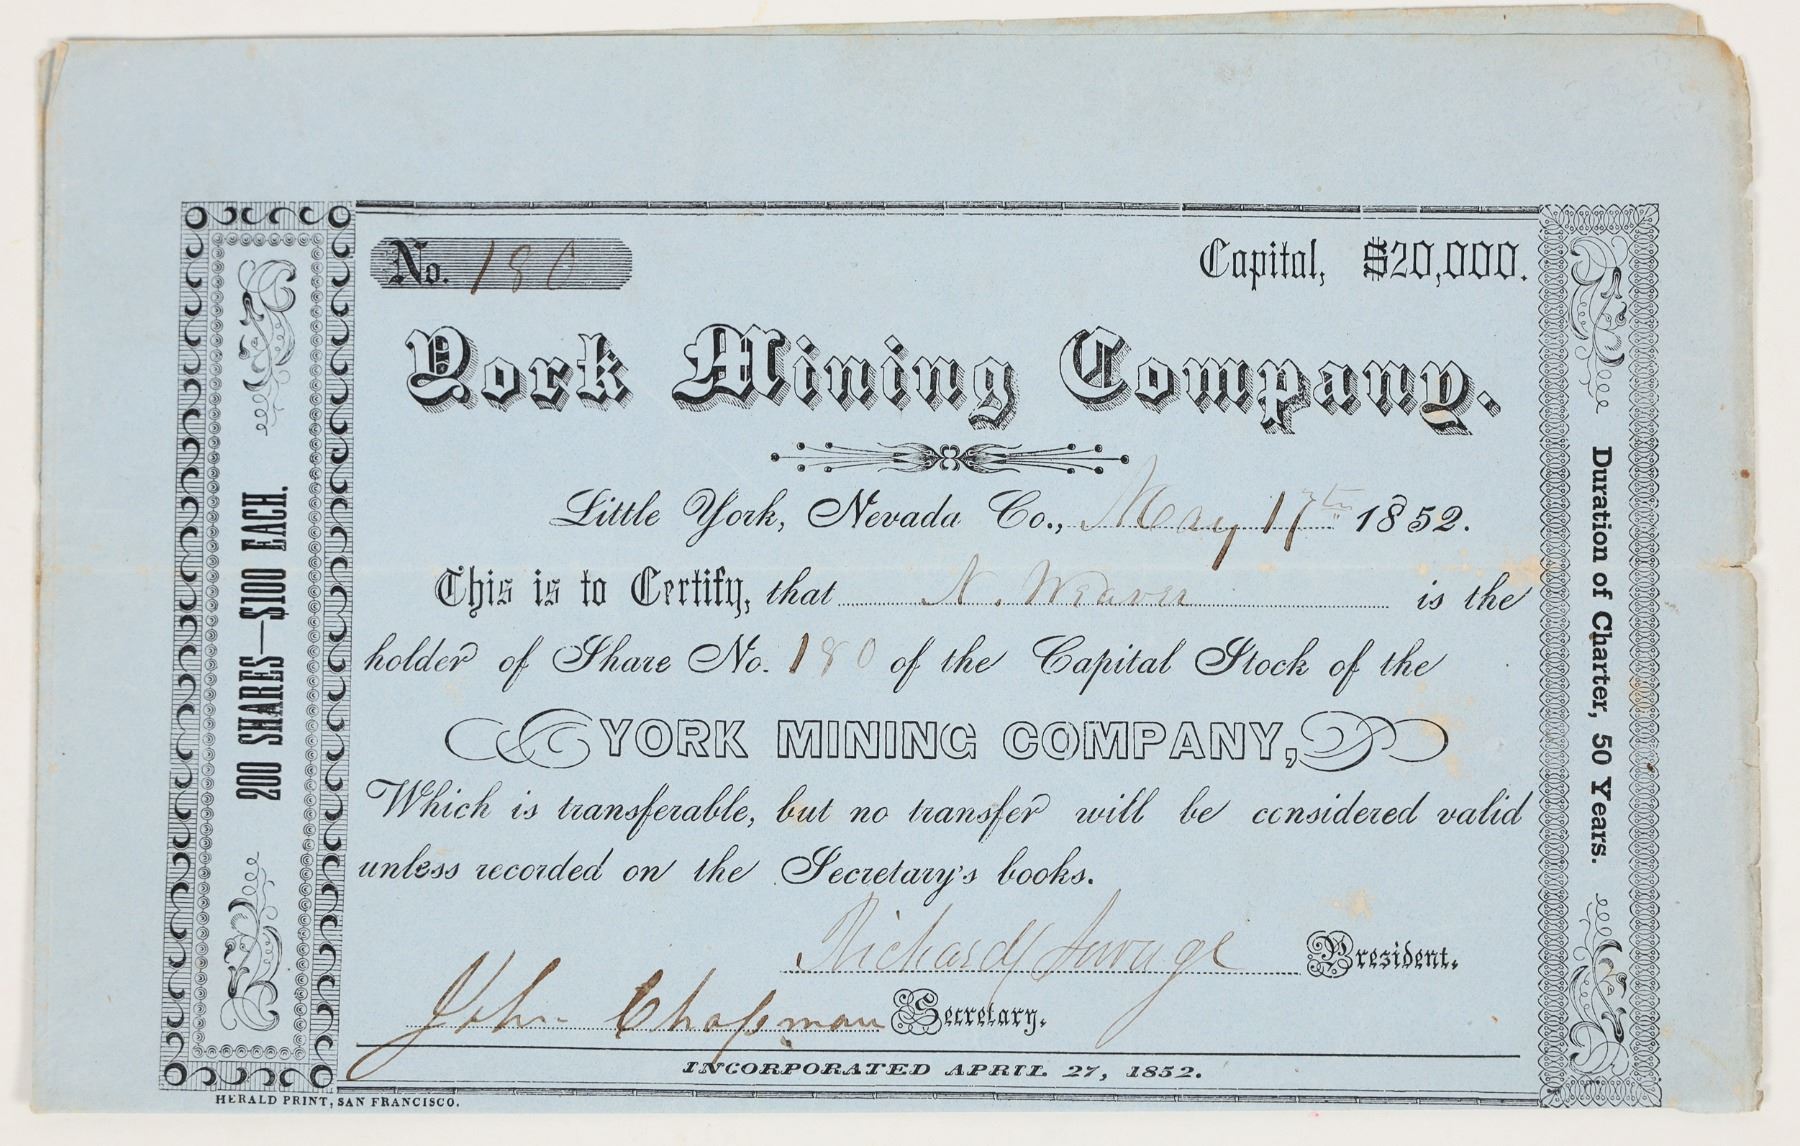 No. 180
Capital, $20,000.
York Mining Company.
Little York, Nevada Co., May 17th 1852.
This is to Certify, that N. Weaver is the
holder of Share No. 180 of the Capital Stock of the
YORK MINING COMPANY,
Which is transferable, but no transfer will be considered valid
unless recorded on the Secretary's books.
Richard Savage President.
John Chapman Secretary.
INCORPORATED APRIL 27, 1852.
HERALD PRINT, SAN FRANCISCO.
200 SHARES—$100 EACH.
Duration of Charter, 50 Years.